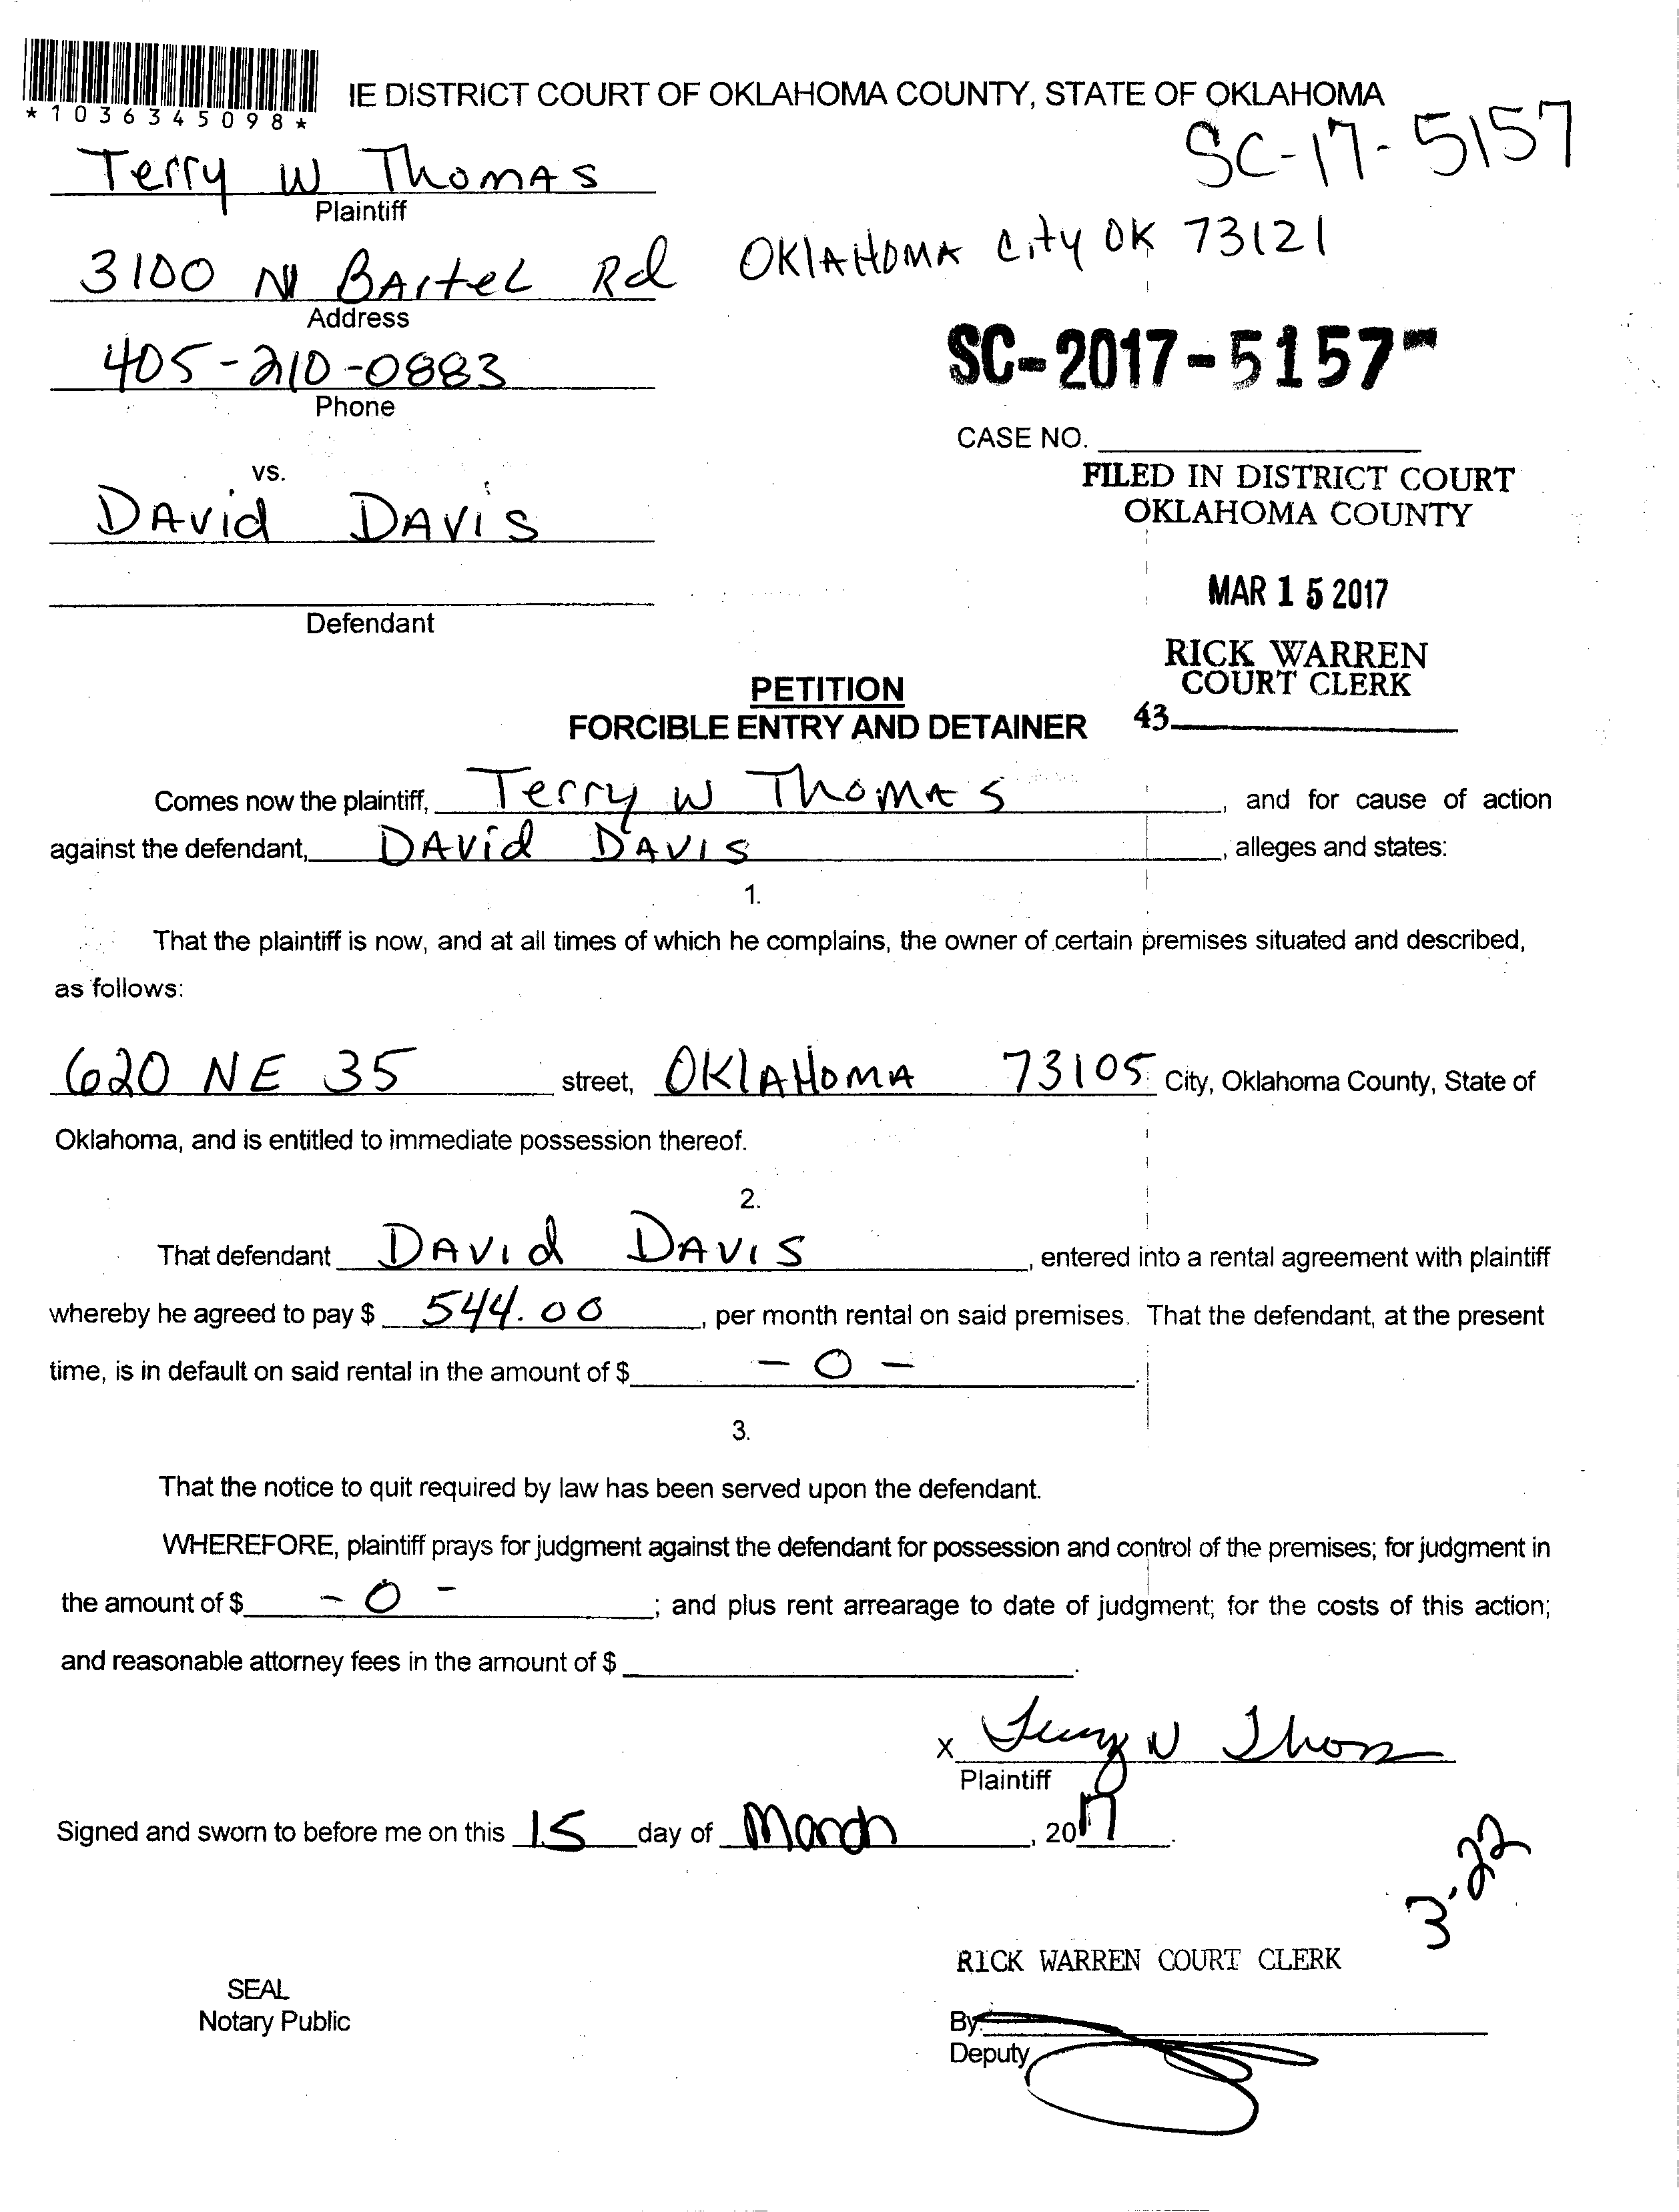 IE DISTRICT COURT OF OKLAHOMA COUNTY, STATE OF OKLAHOMA
*1036345098*
SC-17-5157
Terry W Thomas
Plaintiff
3100 N Bartel Rd OKlAHOMA City OK 73121
Address
405-210-0883
Phone
SC-2017-5157-
CASE NO.
vs.
FILED IN DISTRICT COURT
OKLAHOMA COUNTY
DAvid DAVIS
MAR 15 2017
Defendant
RICK WARREN
COURT CLERK
43
PETITION
FORCIBLE ENTRY AND DETAINER
Comes now the plaintiff, Terry W ThomAs, and for cause of action
against the defendant, DAVid DAVIS, alleges and states:
1.
That the plaintiff is now, and at all times of which he complains, the owner of certain premises situated and described,
as follows:
620 NE 35 street, OKlAHOMA 73105 City, Oklahoma County, State of
Oklahoma, and is entitled to immediate possession thereof.
2.
That defendant DAVid DAVIS, entered into a rental agreement with plaintiff
whereby he agreed to pay $ 544.00, per month rental on said premises. That the defendant, at the present
time, is in default on said rental in the amount of $ - 0 -.
3.
That the notice to quit required by law has been served upon the defendant.
WHEREFORE, plaintiff prays for judgment against the defendant for possession and control of the premises; for judgment in
the amount of $ - 0 -; and plus rent arrearage to date of judgment; for the costs of this action;
and reasonable attorney fees in the amount of $ .
X Terry W Thomas
Plaintiff
Signed and sworn to before me on this 15 day of March, 2017.
3-22
RICK WARREN COURT CLERK
SEAL
Notary Public
By:
Deputy